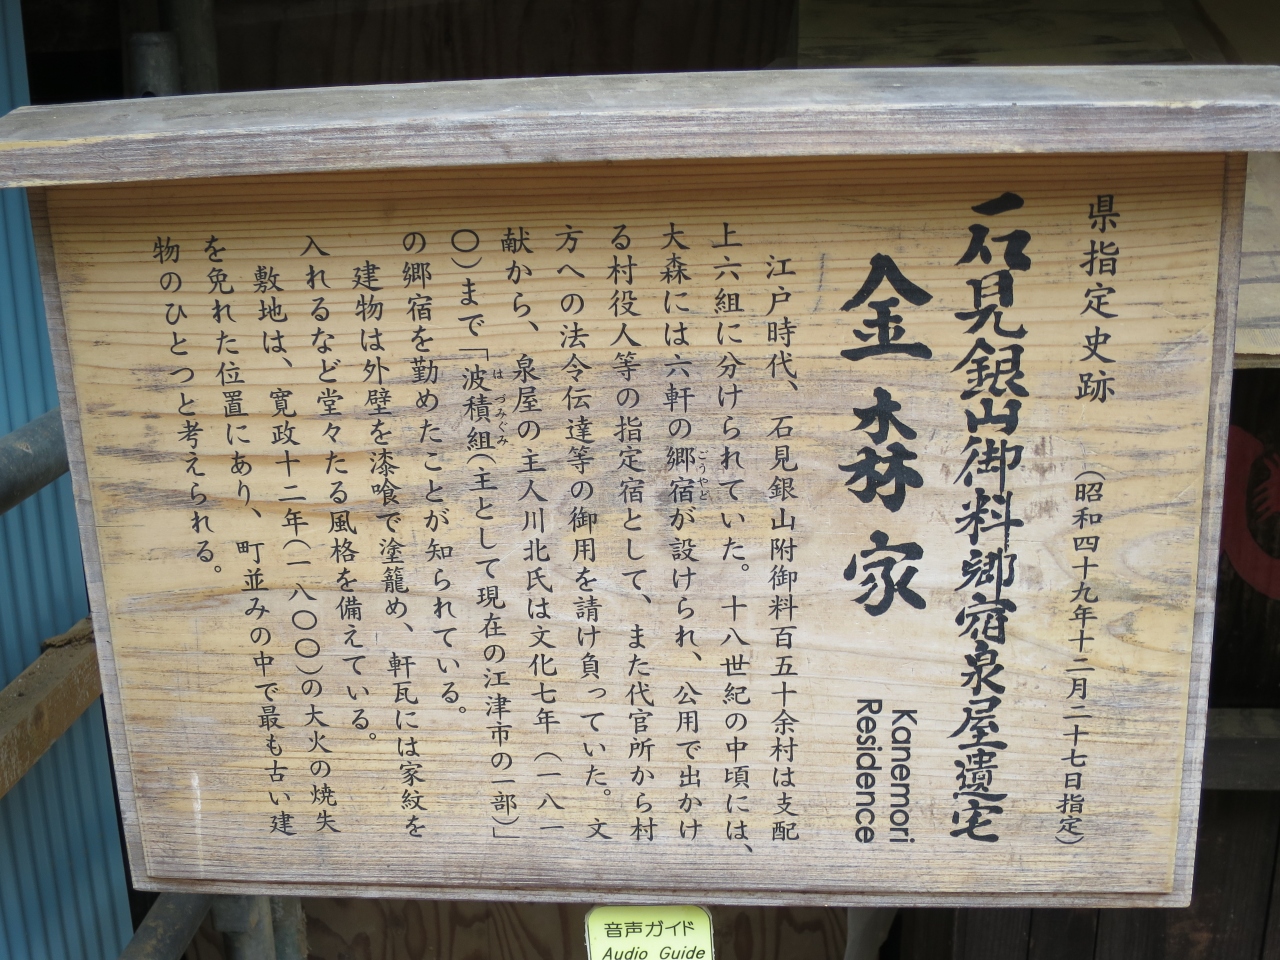 県指定史跡 (昭和四十九年十二月二十七日指定)
石見銀山御料郷宿泉屋遺宅
金森家
Kanemori
Residence
江戸時代、石見銀山附御料百五十余村は支配
上六組に分けられていた。十八世紀の中頃には、
大森には六軒の郷宿が設けられ、公用で出かけ
ごうやど
る村役人等の指定宿として、また代官所から村
方への法令伝達等の御用を請け負っていた。文
献から、泉屋の主人川北氏は文化七年(一八一
〇)まで「波積組(主として現在の江津市の一部)」
はづみぐみ
の郷宿を勤めたことが知られている。
建物は外壁を漆喰で塗籠め、軒瓦には家紋を
入れるなど堂々たる風格を備えている。
敷地は、寛政十二年(一八〇〇)の大火の焼失
を免れた位置にあり、町並みの中で最も古い建
物のひとつと考えられる。
音声ガイド
Audio Guide